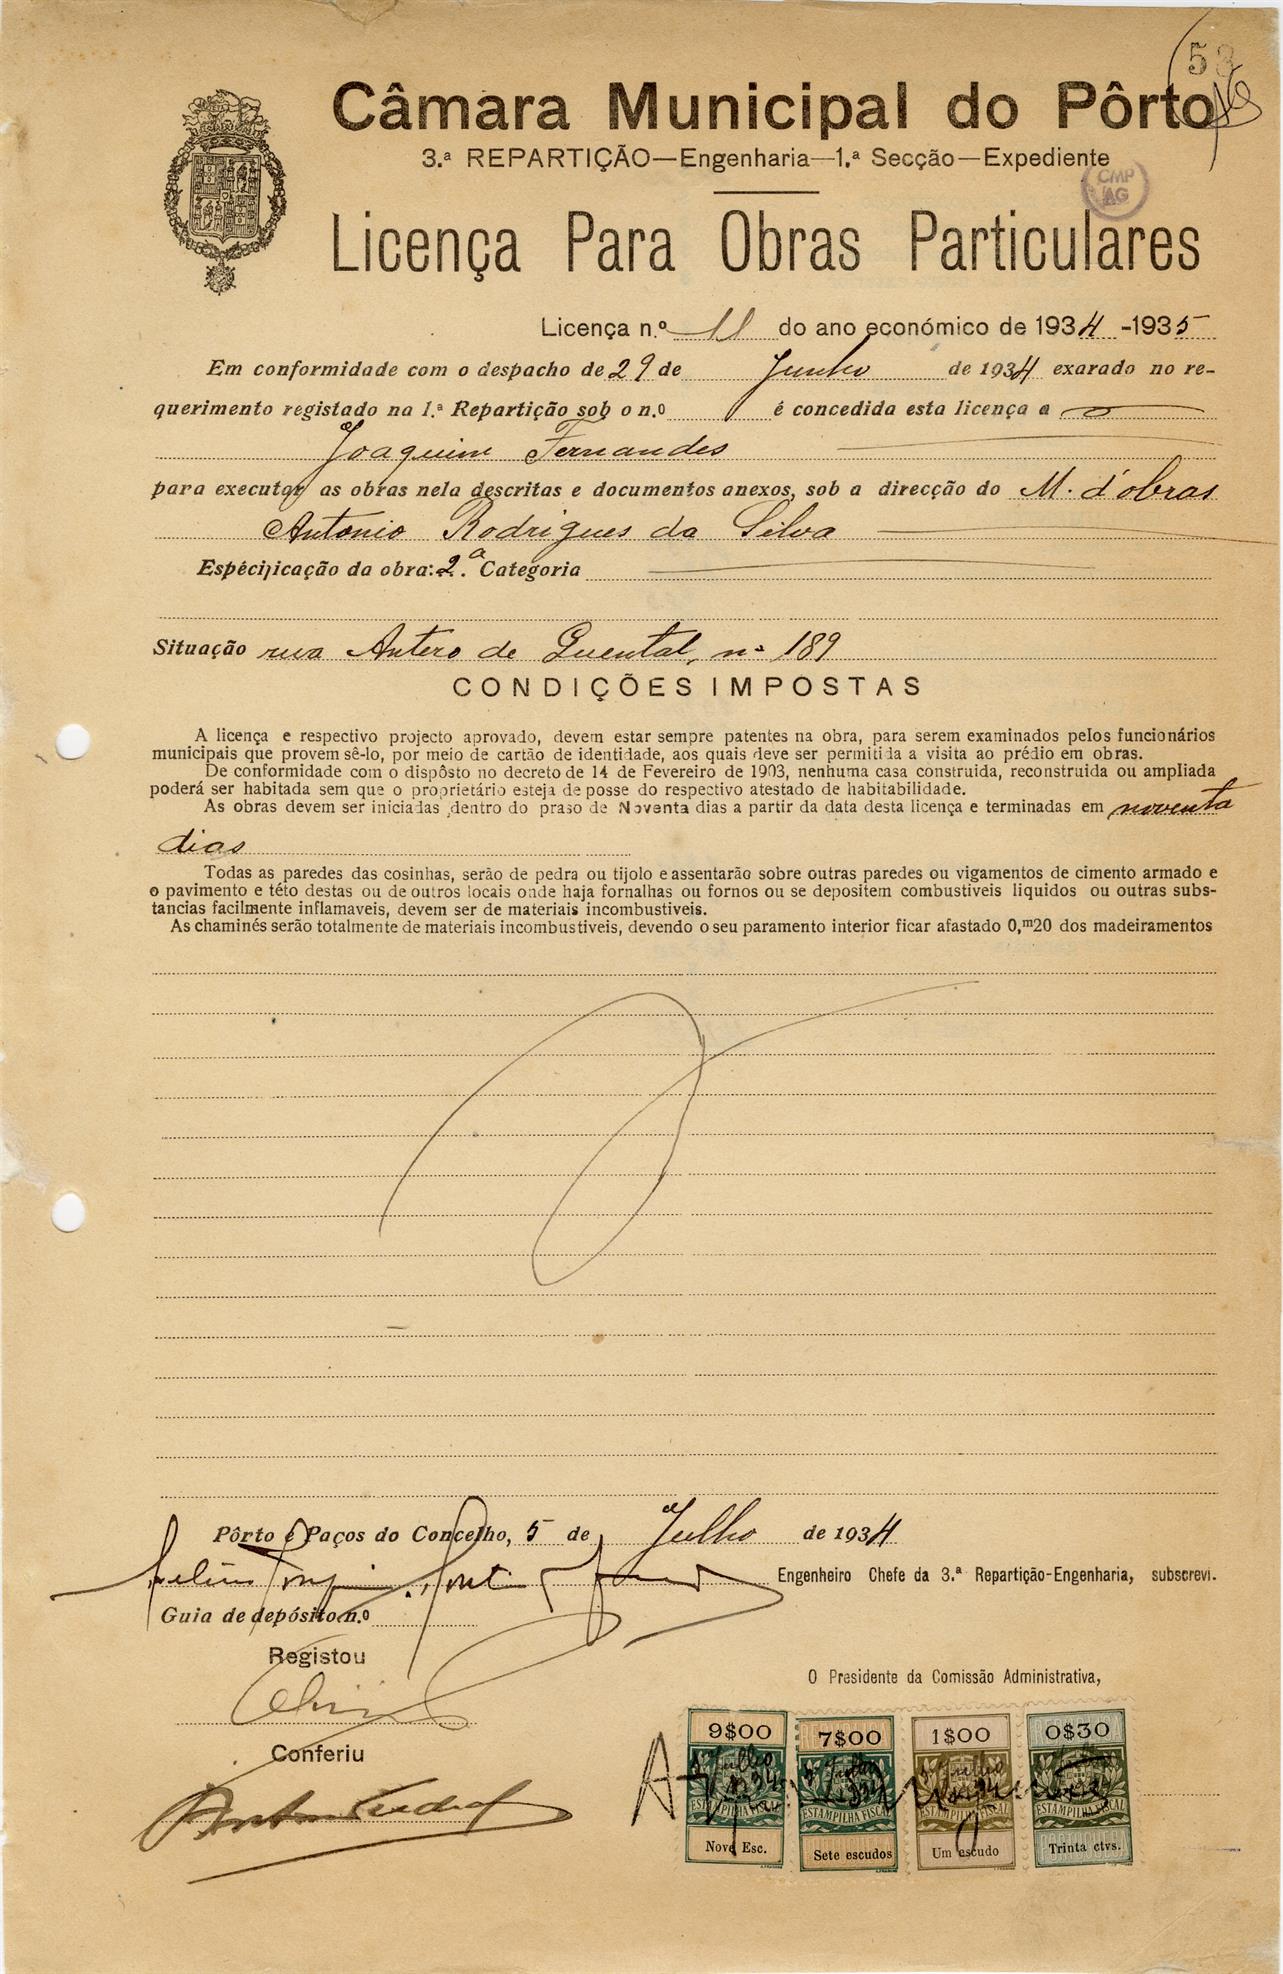 53
Câmara Municipal do Pôrto
3.ª REPARTIÇÃO—Engenharia—1.ª Secção—Expediente
CMP
AG
Licença Para Obras Particulares
Licença n.º 11 do ano económico de 1934-1935
Em conformidade com o despacho de 29 de Junho de 1934 exarado no re-
querimento registado na 1.ª Repartição sob o n.º é concedida esta licença a
Joaquim Fernandes
para executar as obras nela descritas e documentos anexos, sob a direcção do M. d'obras
Antonio Rodrigues da Silva
Especificação da obra: 2.ª Categoria
Situação rua Antero de Quental, nº 189
CONDIÇÕES IMPOSTAS
A licença e respectivo projecto aprovado, devem estar sempre patentes na obra, para serem examinados pelos funcionários
municipais que provem sê-lo, por meio de cartão de identidade, aos quais deve ser permitida a visita ao prédio em obras.
De conformidade com o dispôsto no decreto de 14 de Fevereiro de 1903, nenhuma casa construida, reconstruida ou ampliada
poderá ser habitada sem que o proprietário esteja de posse do respectivo atestado de habitabilidade.
As obras devem ser iniciadas dentro do praso de Noventa dias a partir da data desta licença e terminadas em noventa
dias
Todas as paredes das cosinhas, serão de pedra ou tijolo e assentarão sobre outras paredes ou vigamentos de cimento armado e
o pavimento e této destas ou de outros locais onde haja fornalhas ou fornos ou se depositem combustiveis liquidos ou outras subs-
tancias facilmente inflamaveis, devem ser de materiais incombustiveis.
As chaminés serão totalmente de materiais incombustiveis, devendo o seu paramento interior ficar afastado 0,ᵐ20 dos madeiramentos
Pôrto e Paços do Concelho, 5 de Julho de 1934
Engenheiro Chefe da 3.ª Repartição-Engenharia, subscrevi.
Guia de depósito n.º
Registou
O Presidente da Comissão Administrativa,
Conferiu
9$00 7$00 1$00 0$30
ESTAMPILHA FISCAL ESTAMPILHA FISCAL ESTAMPILHA FISCAL ESTAMPILHA FISCAL
Nove Esc. Sete escudos Um escudo Trinta ctvs.